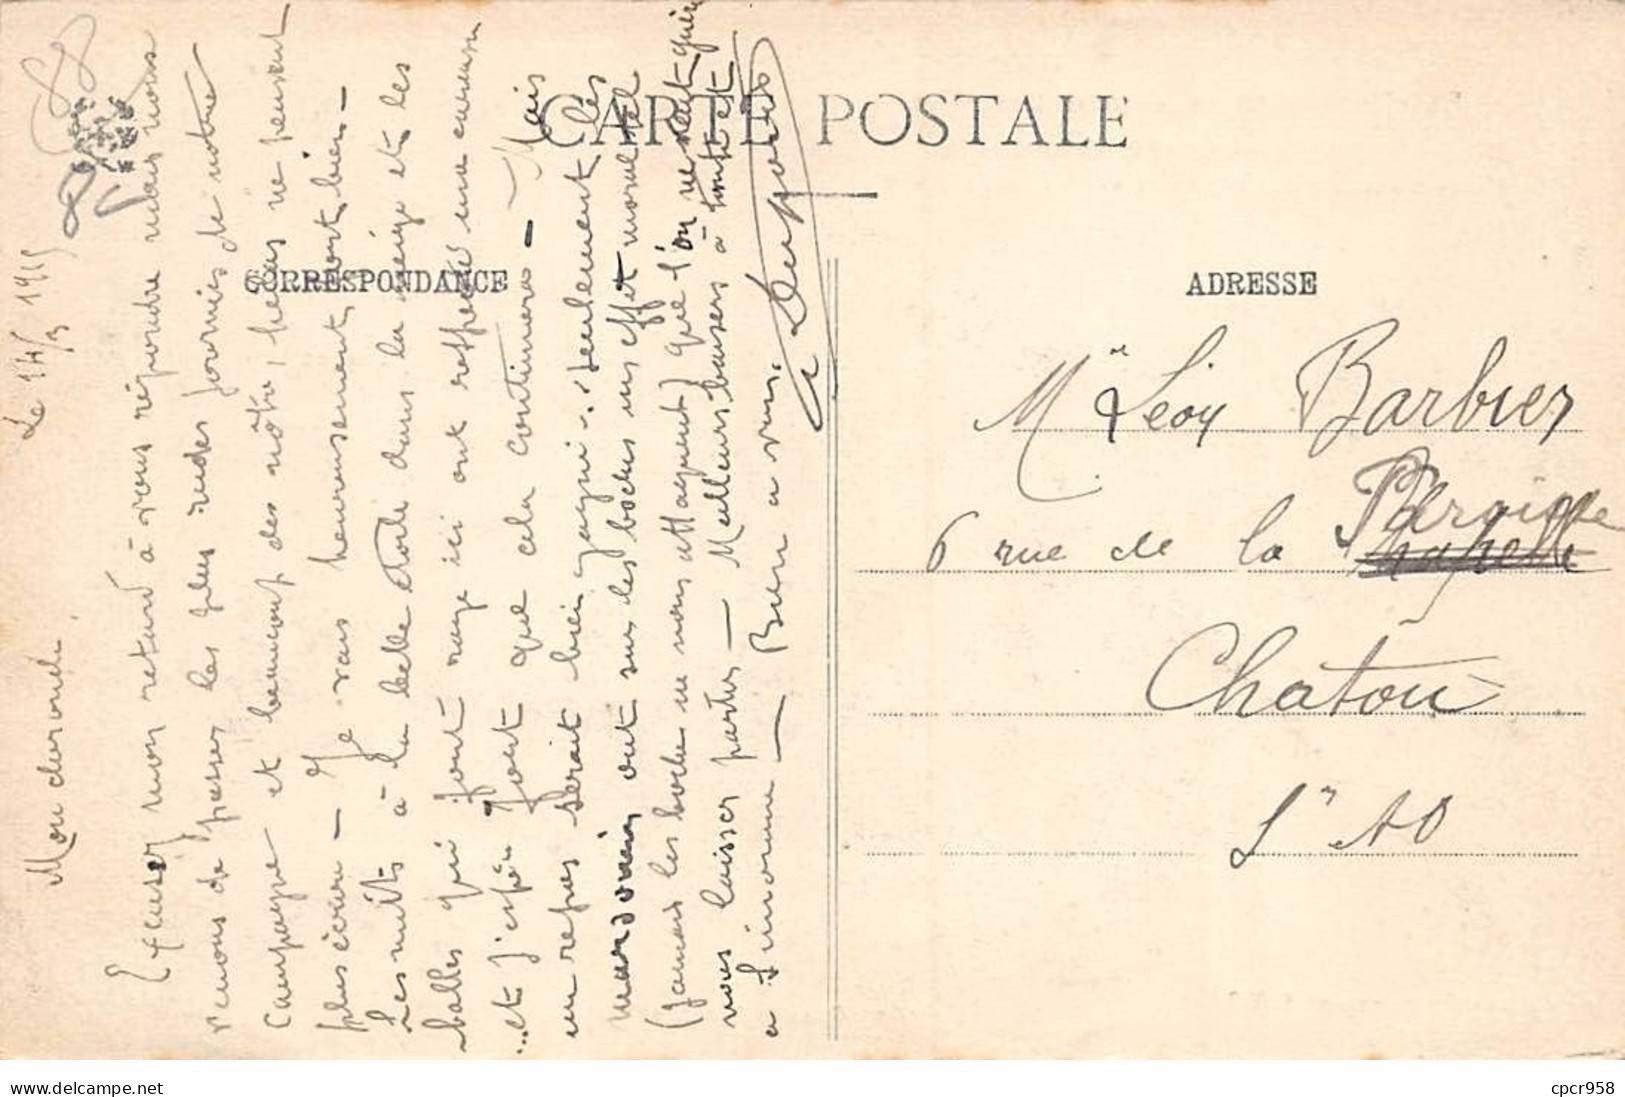 CARTE POSTALE
CORRESPONDANCE
ADRESSE
Le 14/3 1915
Mon cher
Excusez mon retard à vous répondre mais nous
venons de passer les plus rudes journées de notre
Campagne et beaucoup des nôtre, hélas ne peuvent
plus écrire — Je vais heureusement, fort bien —
Les nuits à la belle étoile dans la neige et les
balles qui font rage ici ont respecté ma carcasse
et j'espère fort que cela continuera — Mais
un repos serait bien gagné. Seulement les
ont sur les boches un effet moral tel
(jamais les boches ne nous attaquent) que l'on ne veut guère
nous laisser partir — Meilleurs baisers à tout
— Bien a vous.
Dupont
Mr Léon Barbier
6 rue de la
Chatou
S et O
cpcr958